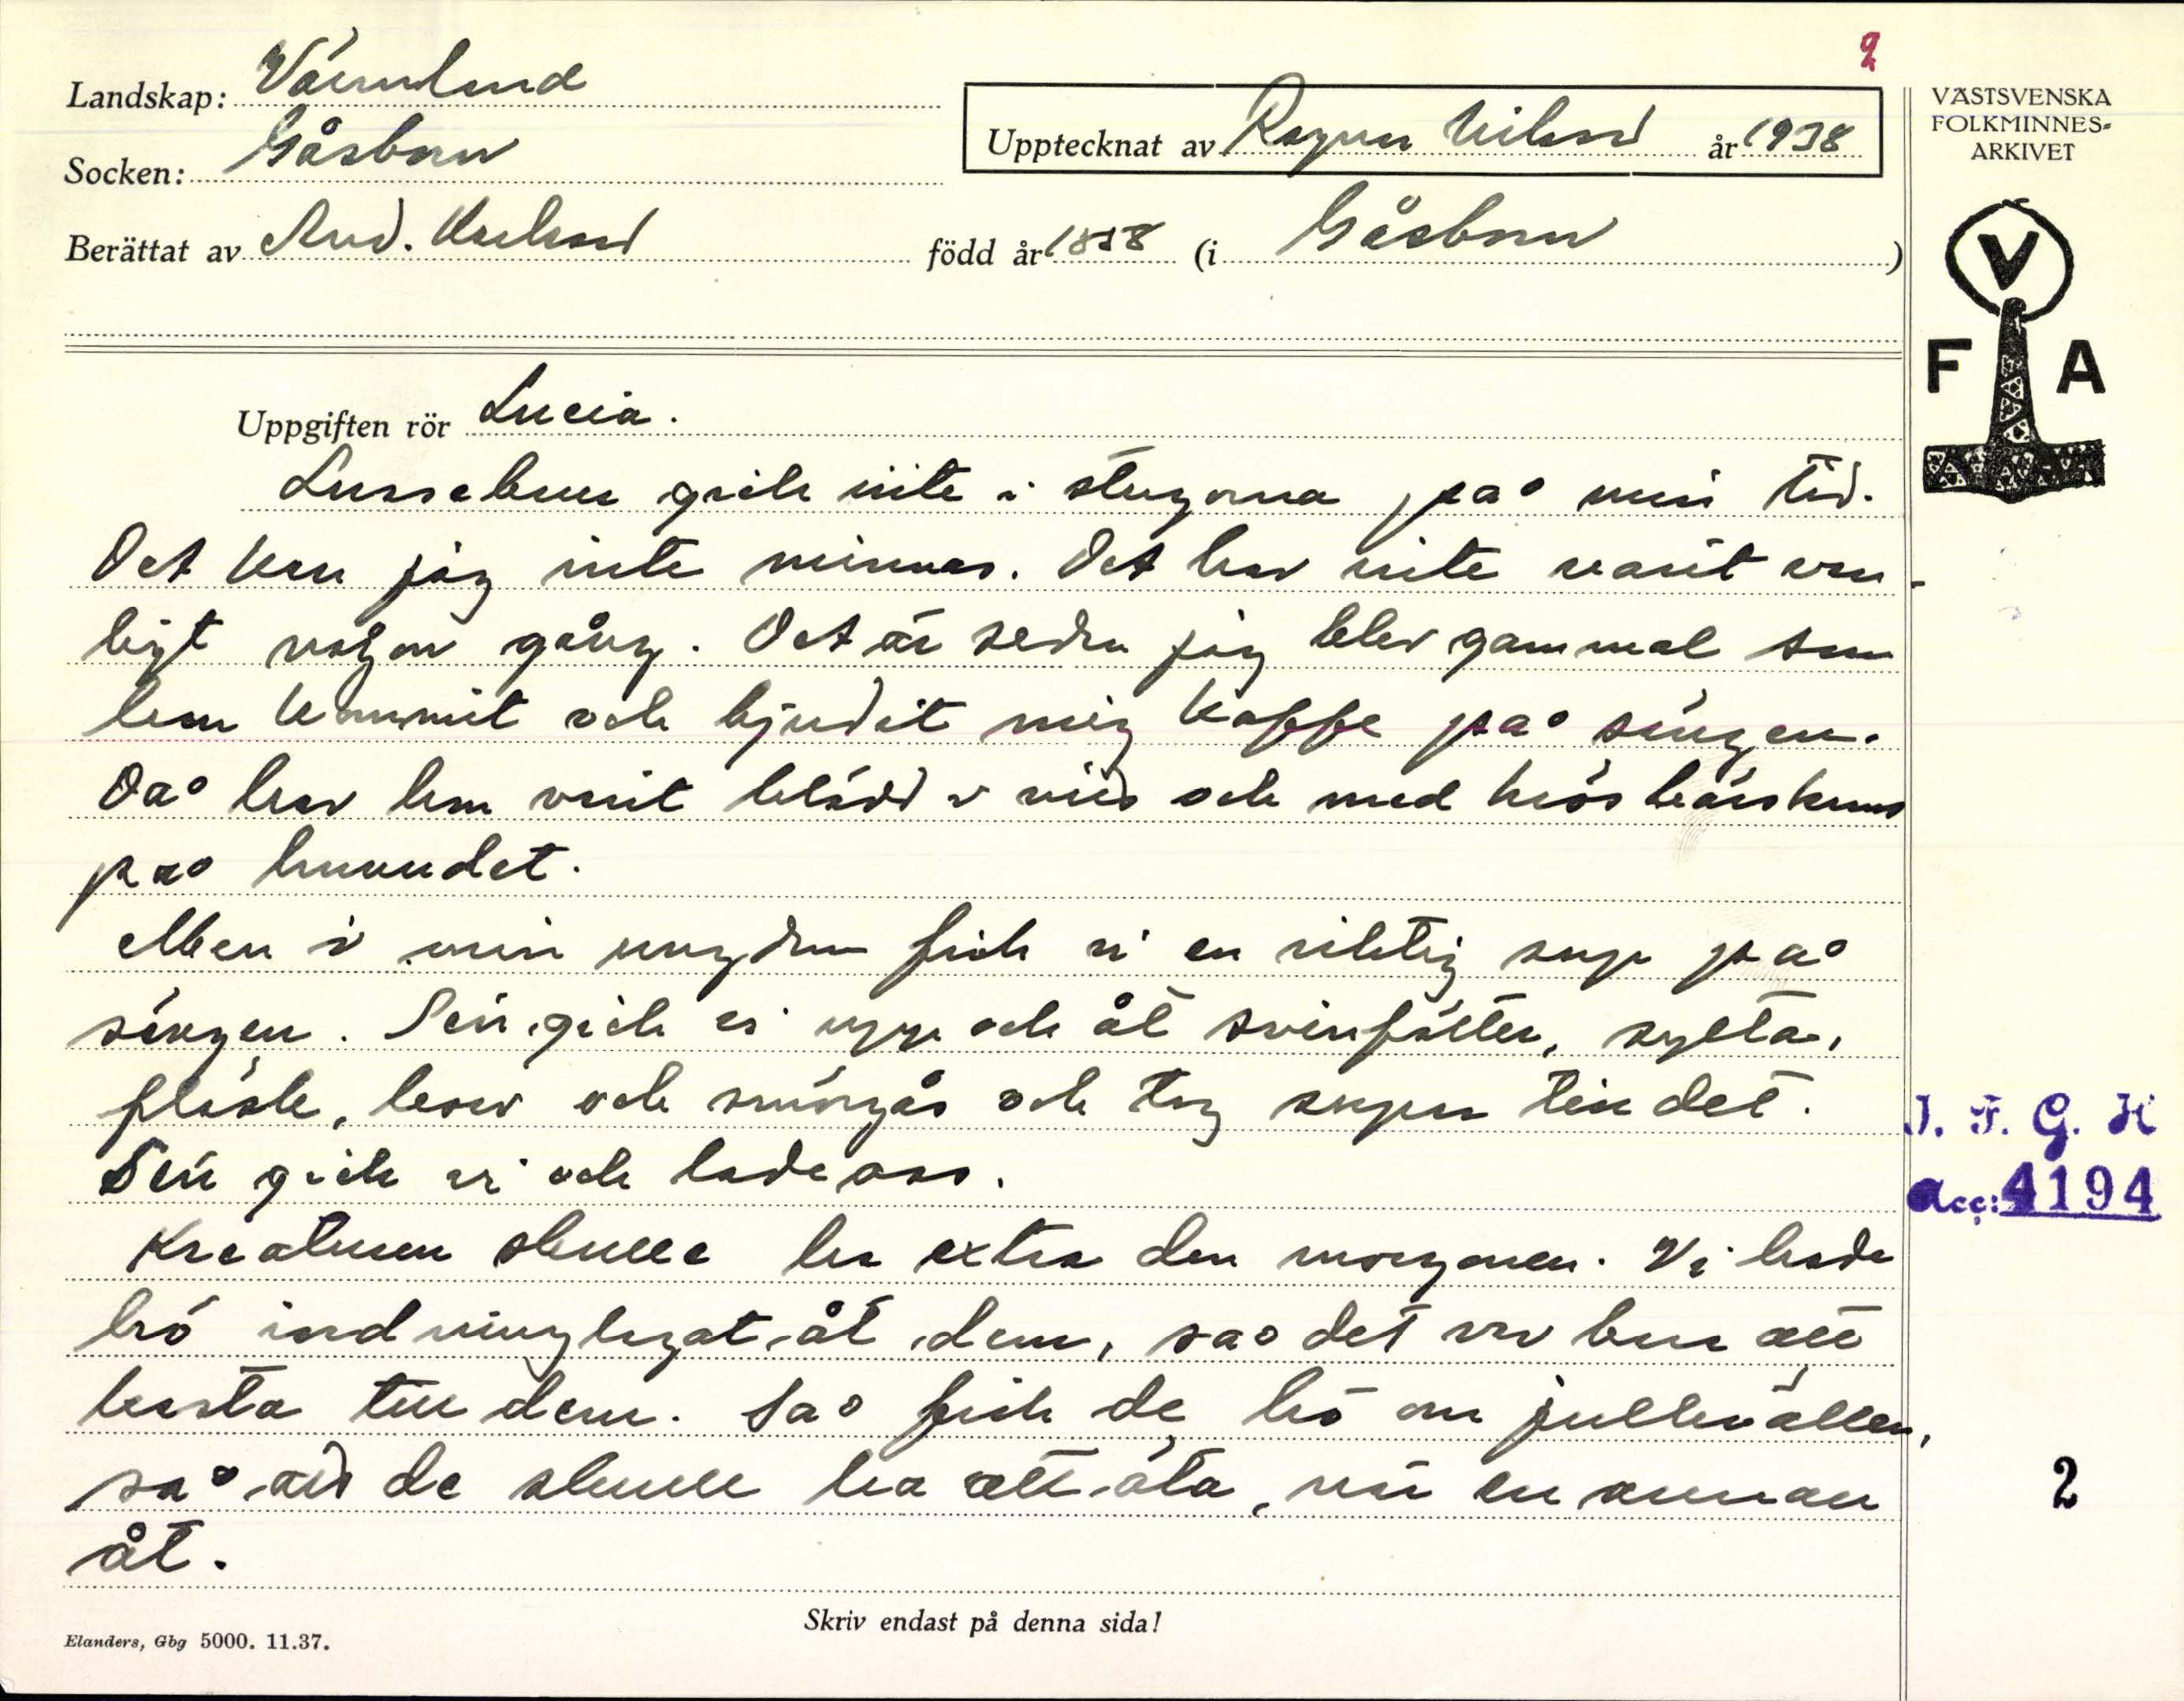 2
Landskap: Värmland
Socken: Gåsborn
Upptecknat av Ragnar Nilsson år 1938
Berättat av And. Karlsson född år 1858 (i Gåsborn)
VÄSTSVENSKA
FOLKMINNES-
ARKIVET
V
F A
Uppgiften rör Lucia.
Lussebrur gick inte i stugorna på min tid.
Det kan jag inte minnas. Det har inte varit van-
ligt någon gång. Det är sedan jag blev gammal som
kommit och bjudit mig kaffe på sängen.
Då har varit klädd i vitt och med
på huvudet.
Men i min ungdom fick vi en riktig sup på
sängen. Sen gick vi upp och åt svinfötter, sylta,
fläsk, korv och smörgås och tog supen till det.
Sen gick vi och lade oss.
Kreaturen skulle ha extra den morgonen. Vi hade
hö åt dem, så det var bara att
kasta till dem. Så fick de hö om julkvällen,
så att de skulle ha att äta, när en annan
åt.
I. F. G. H
Acc: 4194
2
Skriv endast på denna sida!
Elanders, Gbg 5000. 11.37.